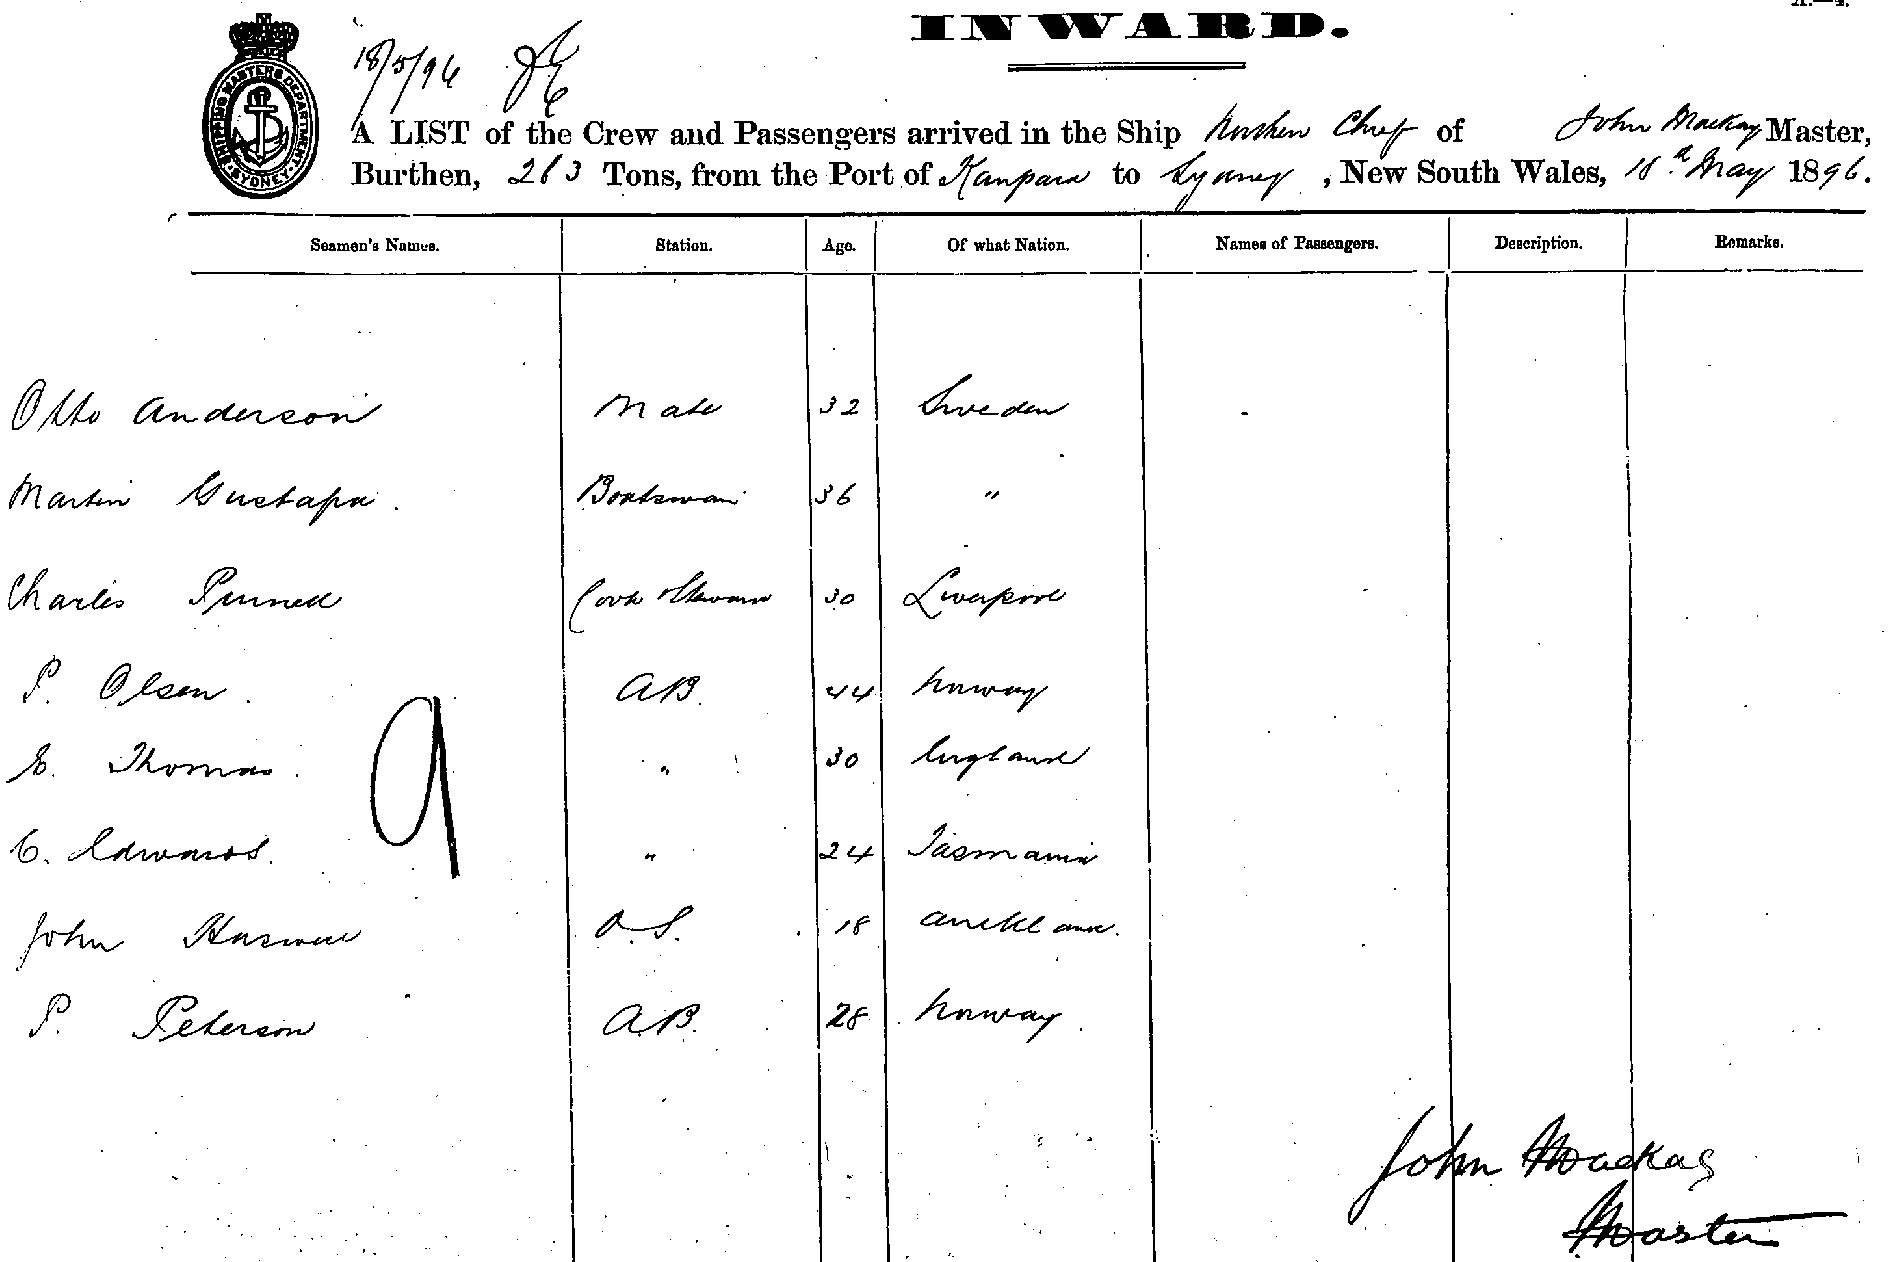 INWARD.
SHIPPING MASTERS DEPARTMENT SYDNEY
18/5/96
A LIST of the Crew and Passengers arrived in the Ship Northern Chief of John Mackay Master,
Burthen, 263 Tons, from the Port of Kaipara to Sydney, New South Wales, 18th May 1896.
Seamen's Names. Station. Age. Of what Nation. Names of Passengers. Description. Remarks.
Otto Anderson Mate 32 Sweden
Martin Gustafa. Boatswain 36 "
Charles Purnell Cook & Steward 30 Liverpool
P. Olsen. A.B. 44 Norway
E. Thomas. " 30 England
C. Edwards. " 24 Tasmania
John Haswell O.S. 18 Auckland.
P. Peterson A.B. 28 Norway
9
John Mackay
Master